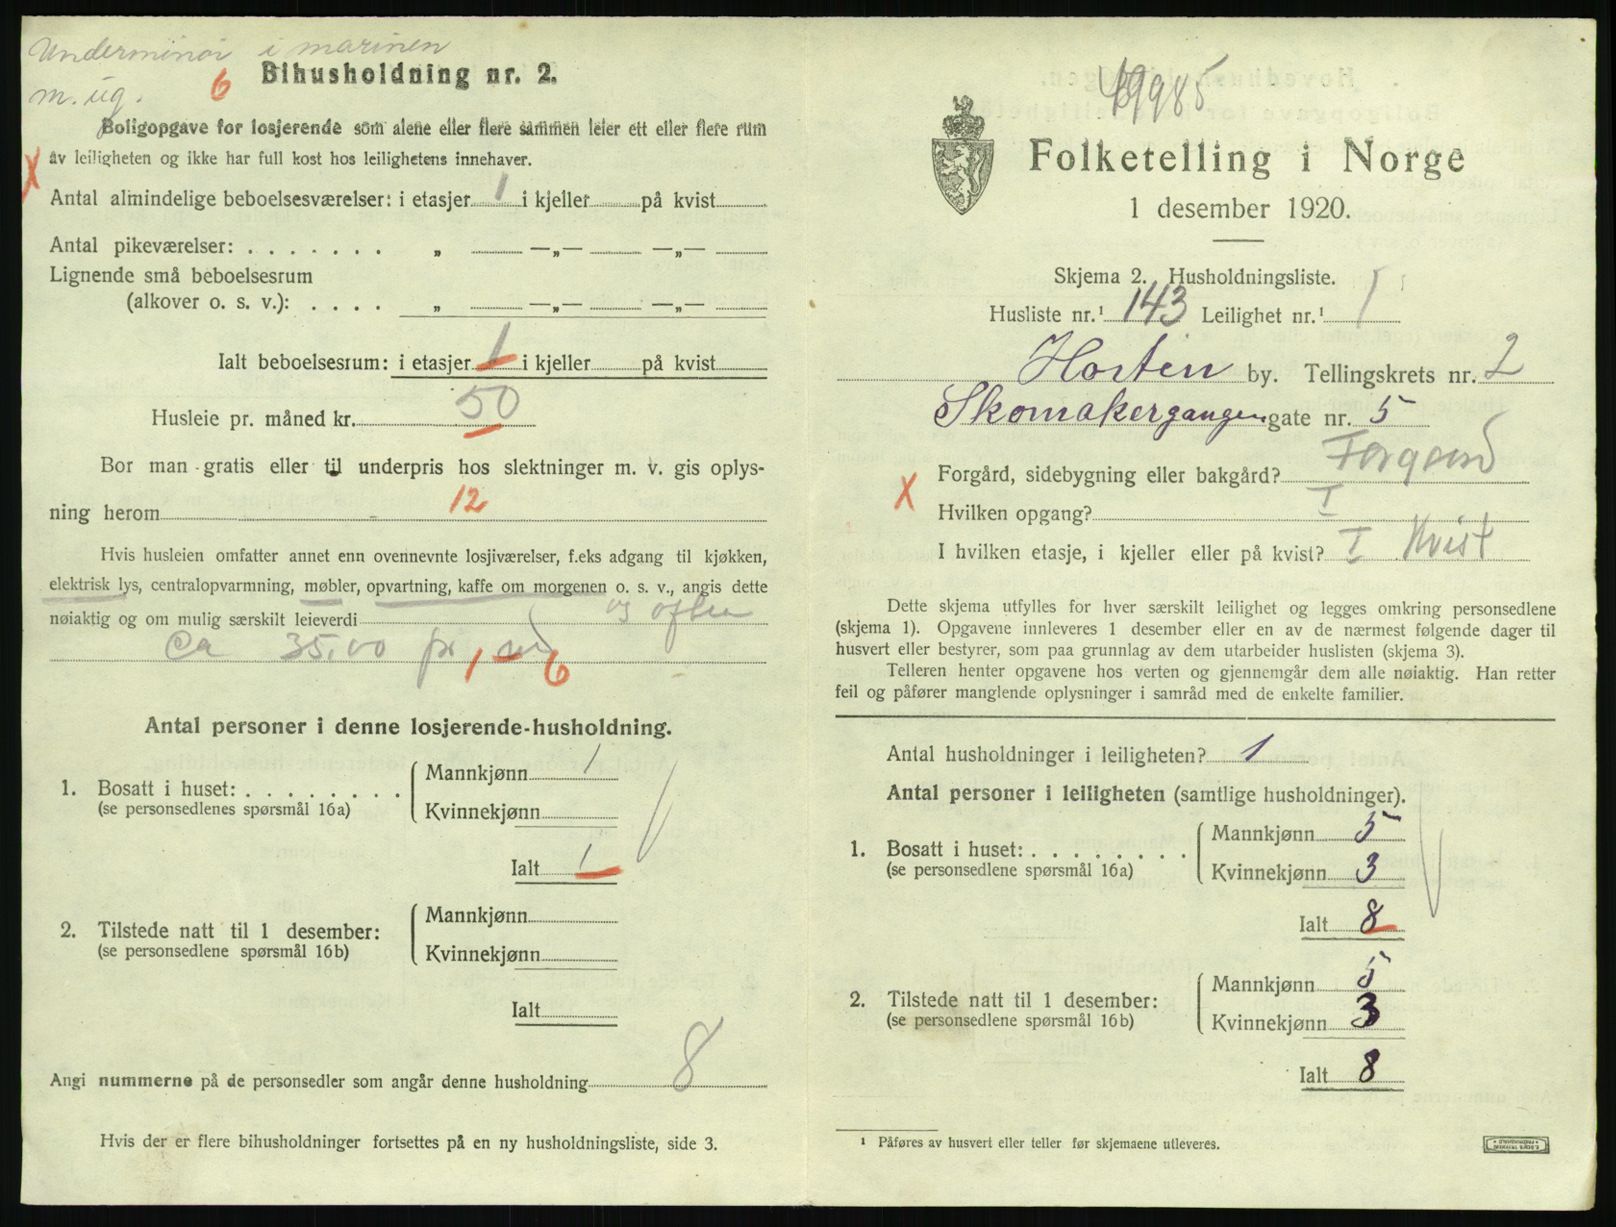 Underminør i marinen
m. ug.
6
Bihusholdning nr. 2.
Boligopgave for losjerende som alene eller flere sammen leier ett eller flere rum
av leiligheten og ikke har full kost hos leilighetens innehaver.
X
Antal almindelige beboelsesværelser: i etasjer 1 i kjeller på kvist
Antal pikeværelser: . . . . . . . „ —„— —„—
Lignende små beboelsesrum
(alkover o. s. v.): . . . . „ —„— —„—
Ialt beboelsesrum: i etasjer 1 i kjeller på kvist
Husleie pr. måned kr. 50
Bor man gratis eller til underpris hos slektninger m. v. gis oplys-
ning herom 12
Hvis husleien omfatter annet enn ovennevnte losjiværelser, f.eks adgang til kjøkken,
elektrisk lys, centralopvarmning, møbler, opvartning, kaffe om morgenen o. s. v., angis dette
nøiaktig og om mulig særskilt leieverdi og aften
Ca 35,00 pr
1 - 6
Antal personer i denne losjerende-husholdning.
1. Bosatt i huset: . . . . . . . . Mannkjønn 1
(se personsedlenes spørsmål 16a) Kvinnekjønn
Ialt 1
2. Tilstede natt til 1 desember: Mannkjønn
(se personsedlene spørsmål 16b) Kvinnekjønn
Ialt
Angi nummerne på de personsedler som angår denne husholdning 8
Hvis der er flere bihusholdninger fortsettes på en ny husholdningsliste, side 3.
Folketelling i Norge
1 desember 1920.
Skjema 2. Husholdningsliste.
Husliste nr.¹ 143 Leilighet nr.¹ 1
Horten by. Tellingskrets nr. 2
Skomakergangen gate nr. 5
Forgård, sidebygning eller bakgård? Forgaard
X
Hvilken opgang? I
I hvilken etasje, i kjeller eller på kvist? I Kvist
Dette skjema utfylles for hver særskilt leilighet og legges omkring personsedlene
(skjema 1). Opgavene innleveres 1 desember eller en av de nærmest følgende dager til
husvert eller bestyrer, som paa grunnlag av dem utarbeider huslisten (skjema 3).
Telleren henter opgavene hos verten og gjennemgår dem alle nøiaktig. Han retter
feil og påfører manglende oplysninger i samråd med de enkelte familier.
Antal husholdninger i leiligheten? 1
Antal personer i leiligheten (samtlige husholdninger).
1. Bosatt i huset: . . . . . . . . Mannkjønn 5
(se personsedlene spørsmål 16a) Kvinnekjønn 3
Ialt 8
2. Tilstede natt til 1 desember: Mannkjønn 5
(se personsedlene spørsmål 16b) Kvinnekjønn 3
Ialt 8
¹ Påføres av husvert eller teller før skjemaene utleveres.